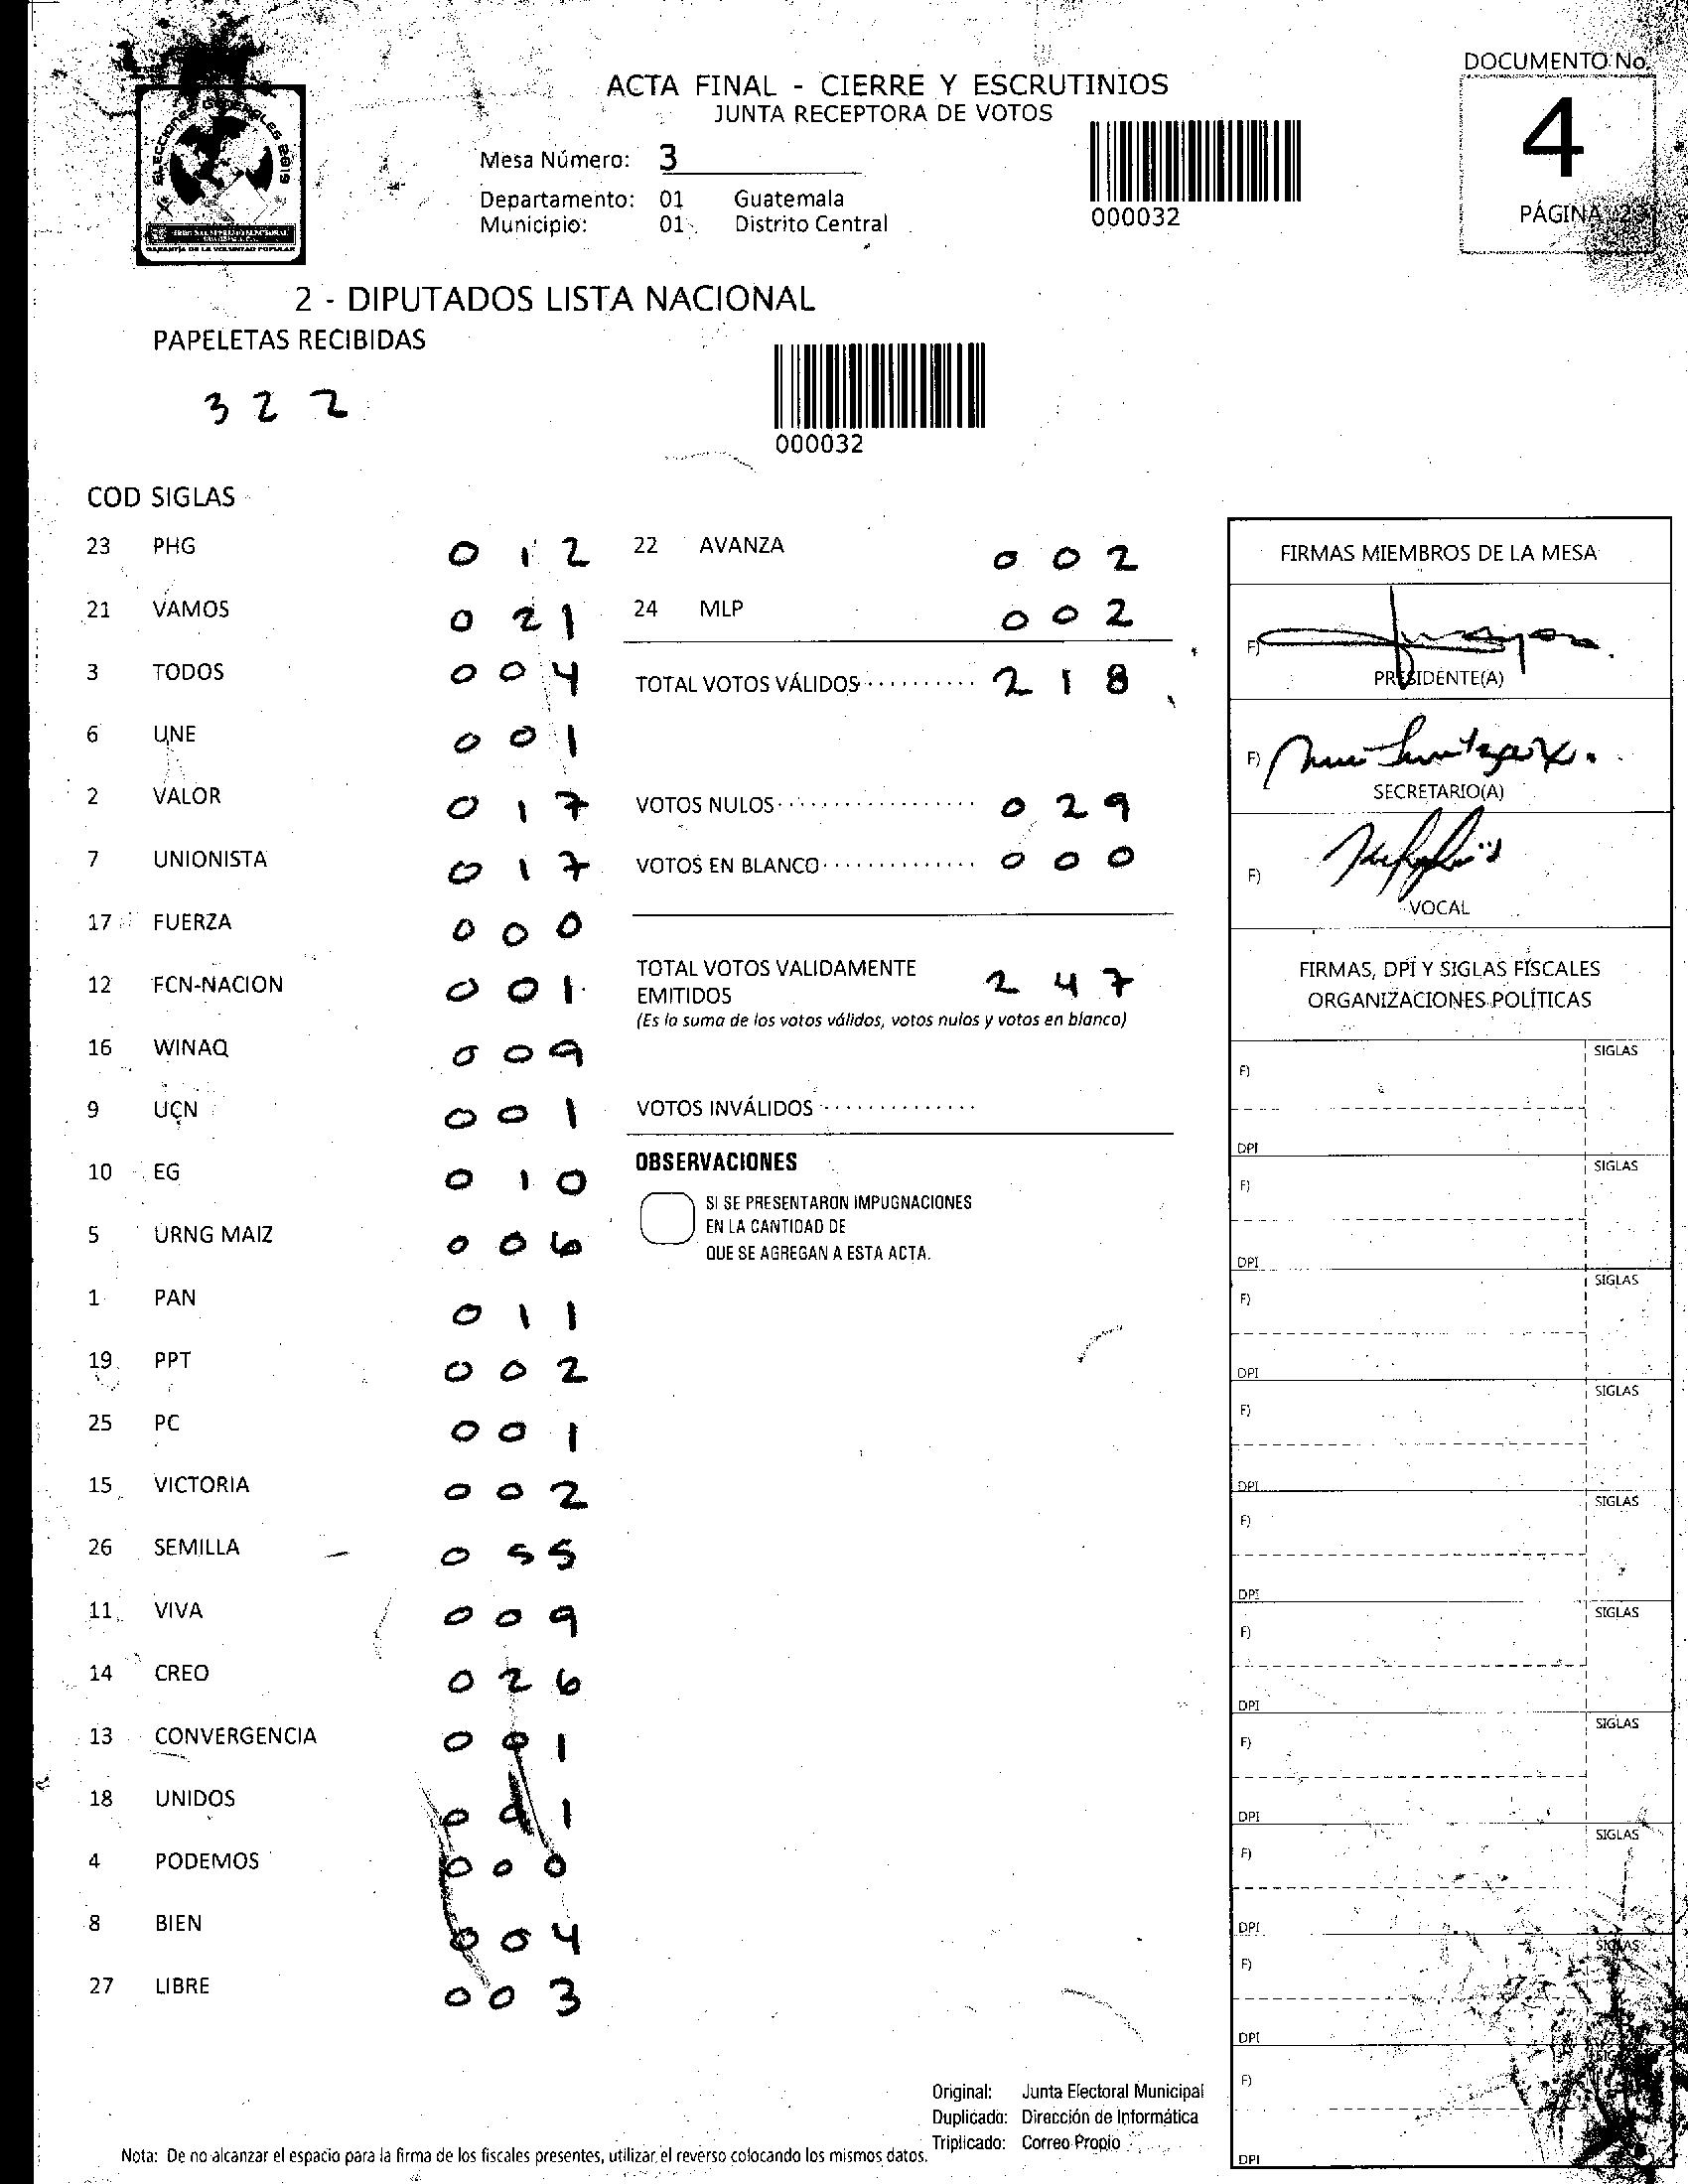 DOCUMENTO No.
ACTA FINAL - CIERRE Y ESCRUTINIOS
JUNTA RECEPTORA DE VOTOS
4
PÁGINA
ELECCIONES GENERALES 2019
GARANTÍA DE LA VOLUNTAD POPULAR
Mesa Número: 3
Departamento: 01 Guatemala
Municipio: 01 Distrito Central
000032
2 - DIPUTADOS LISTA NACIONAL
PAPELETAS RECIBIDAS
3 2 2
000032
COD SIGLAS
23 PHG 0 1 2
21 VAMOS 0 2 1
3 TODOS 0 0 4
6 UNE 0 0 1
2 VALOR 0 1 7
7 UNIONISTA 0 1 7
17 FUERZA 0 0 0
12 FCN-NACION 0 0 1
16 WINAQ 0 0 9
9 UCN 0 0 1
10 EG 0 1 0
5 URNG MAIZ 0 0 6
1 PAN 0 1 1
19 PPT 0 0 2
25 PC 0 0 1
15 VICTORIA 0 0 2
26 SEMILLA 0 5 5
11 VIVA 0 0 9
14 CREO 0 2 6
13 CONVERGENCIA 0 0 1
18 UNIDOS 0 0 1
4 PODEMOS 0 0 0
8 BIEN 0 0 4
27 LIBRE 0 0 3
22 AVANZA 0 0 2
24 MLP 0 0 2
TOTAL VOTOS VÁLIDOS 2 1 8
VOTOS NULOS 0 2 9
VOTOS EN BLANCO 0 0 0
TOTAL VOTOS VALIDAMENTE
EMITIDOS 2 4 7
(Es la suma de los votos válidos, votos nulos y votos en blanco)
VOTOS INVÁLIDOS
OBSERVACIONES
SI SE PRESENTARON IMPUGNACIONES
EN LA CANTIDAD DE
QUE SE AGREGAN A ESTA ACTA.
FIRMAS MIEMBROS DE LA MESA
F)
PRESIDENTE(A)
F)
SECRETARIO(A)
F)
VOCAL
FIRMAS, DPI Y SIGLAS FISCALES
ORGANIZACIONES POLÍTICAS
F) SIGLAS
DPI
F) SIGLAS
DPI
F) SIGLAS
DPI
F) SIGLAS
DPI
F) SIGLAS
DPI
F) SIGLAS
DPI
F) SIGLAS
DPI
F) SIGLAS
DPI
F) SIGLAS
DPI
F)
DPI
Original: Junta Electoral Municipal
Duplicado: Dirección de Informática
Triplicado: Correo Propio
Nota: De no alcanzar el espacio para la firma de los fiscales presentes, utilizar el reverso colocando los mismos datos.